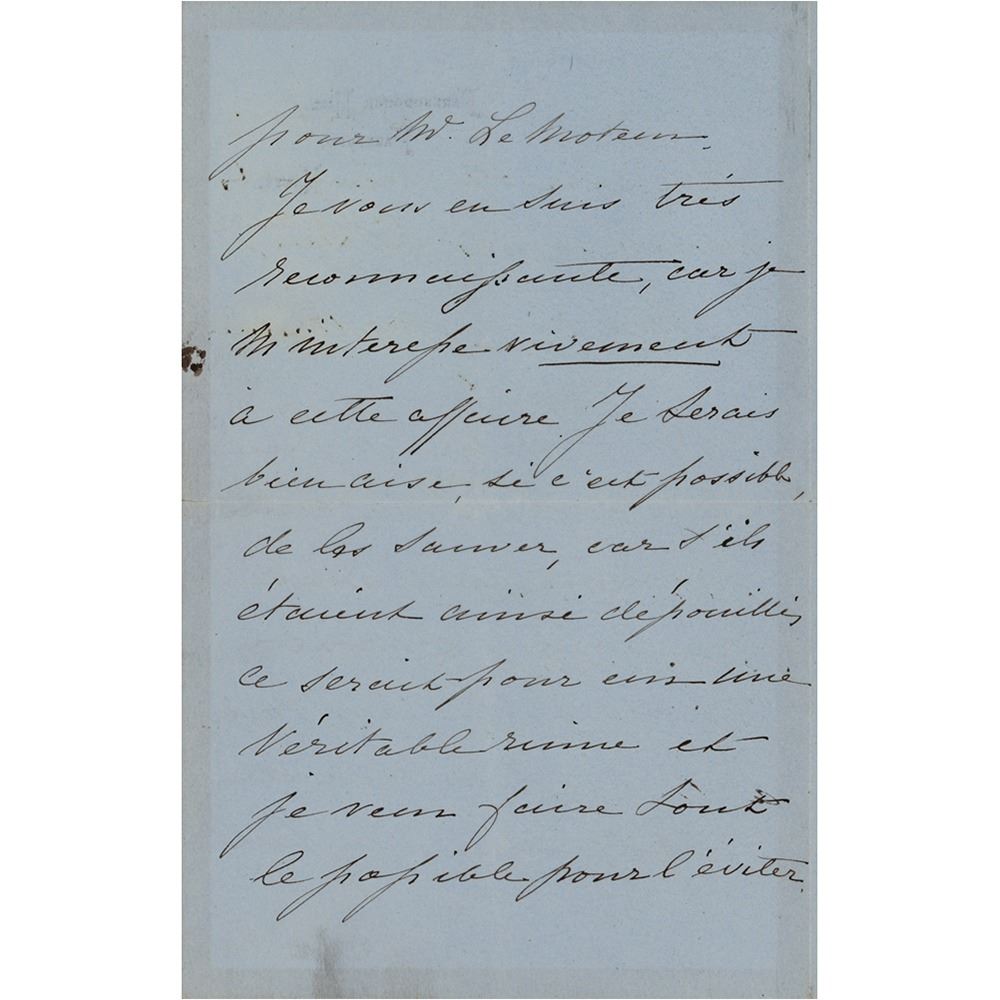 pour M. Le Moteux.
Je vous en suis très
reconnaissante, car je
m'interesse vivement
à cette affaire. Je serais
bien aise, si c'est possible,
de les sauver, car s'ils
étaient ainsi dépouillés,
ce serait pour eux une
véritable ruine et
je veux faire tout
le possible pour l'éviter.